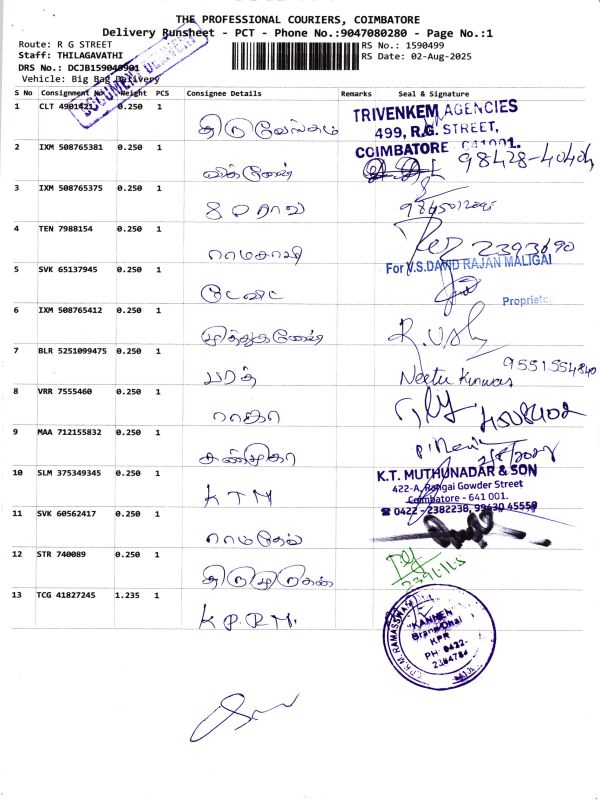 THE PROFESSIONAL COURIERS, COIMBATORE
Delivery Runsheet - PCT - Phone No.:9047080280 - Page No.:1
Route: R G STREET
RS No.: 1590499
Staff: THILAGAVATHI
RS Date: 02-Aug-2025
DRS No.: DCJB159040901
Vehicle: Big Bag Delivery
DOCUMENT DELIVERY
S No Consignment No Weight PCS Consignee Details Remarks Seal & Signature
1 CLT 4901421 0.250 1
TRIVENKEM AGENCIES
499, R.G. STREET,
COIMBATORE - 641001.
2 IXM 508765381 0.250 1
விக்னேஷ் 98428-40404
3 IXM 508765375 0.250 1
4 TEN 7988154 0.250 1
ராமசாமி 2393690
5 SVK 65137945 0.250 1
For V.S.DAVID RAJAN MALIGAI
டேவிட்
Proprietor
6 IXM 508765412 0.250 1
முத்துகணேஷ்
7 BLR 5251099475 0.250 1
9551554840
பரத் Neetu Kunwar
8 VRR 7555460 0.250 1
ராதா
9 MAA 712155832 0.250 1
சண்முகா
10 SLM 375349345 0.250 1
K.T. MUTHUNADAR & SON
422-A, Rangai Gowder Street
Coimbatore - 641 001.
☎ 0422 - 2382238, 99430 45559
KTM
11 SVK 60562417 0.250 1
ராமதேவ்
12 STR 740089 0.250 1
திருமுருகன்
13 TCG 41827245 1.235 1
K.P.R.M.
KANNEN
KPR
PH: 0422-
2384784